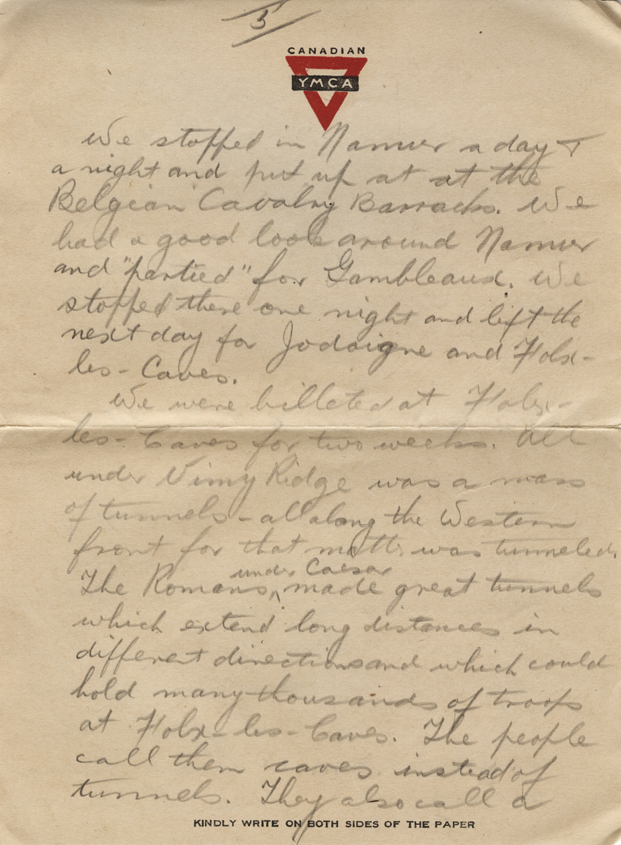 3
CANADIAN
YMCA
We stopped in Namur a day &
a night and put up at at the
Belgian Cavalry Barracks. We
had a good look around Namur
and "partied" for Gambleaux. We
stopped there one night and left the
next day for Jodoigne and Folx-
les-Caves.
We were billeted at Folx-
les-Caves for two weeks. All
under Vimy Ridge was a mass
of tunnels - all along the Western
front for that matter was tunneled.
The Romans, under Caesar made great tunnels
which extend long distances in
different directions and which could
hold many thousands of troops
at Folx-les-Caves. The people
call them caves instead of
tunnels. They also call a
KINDLY WRITE ON BOTH SIDES OF THE PAPER